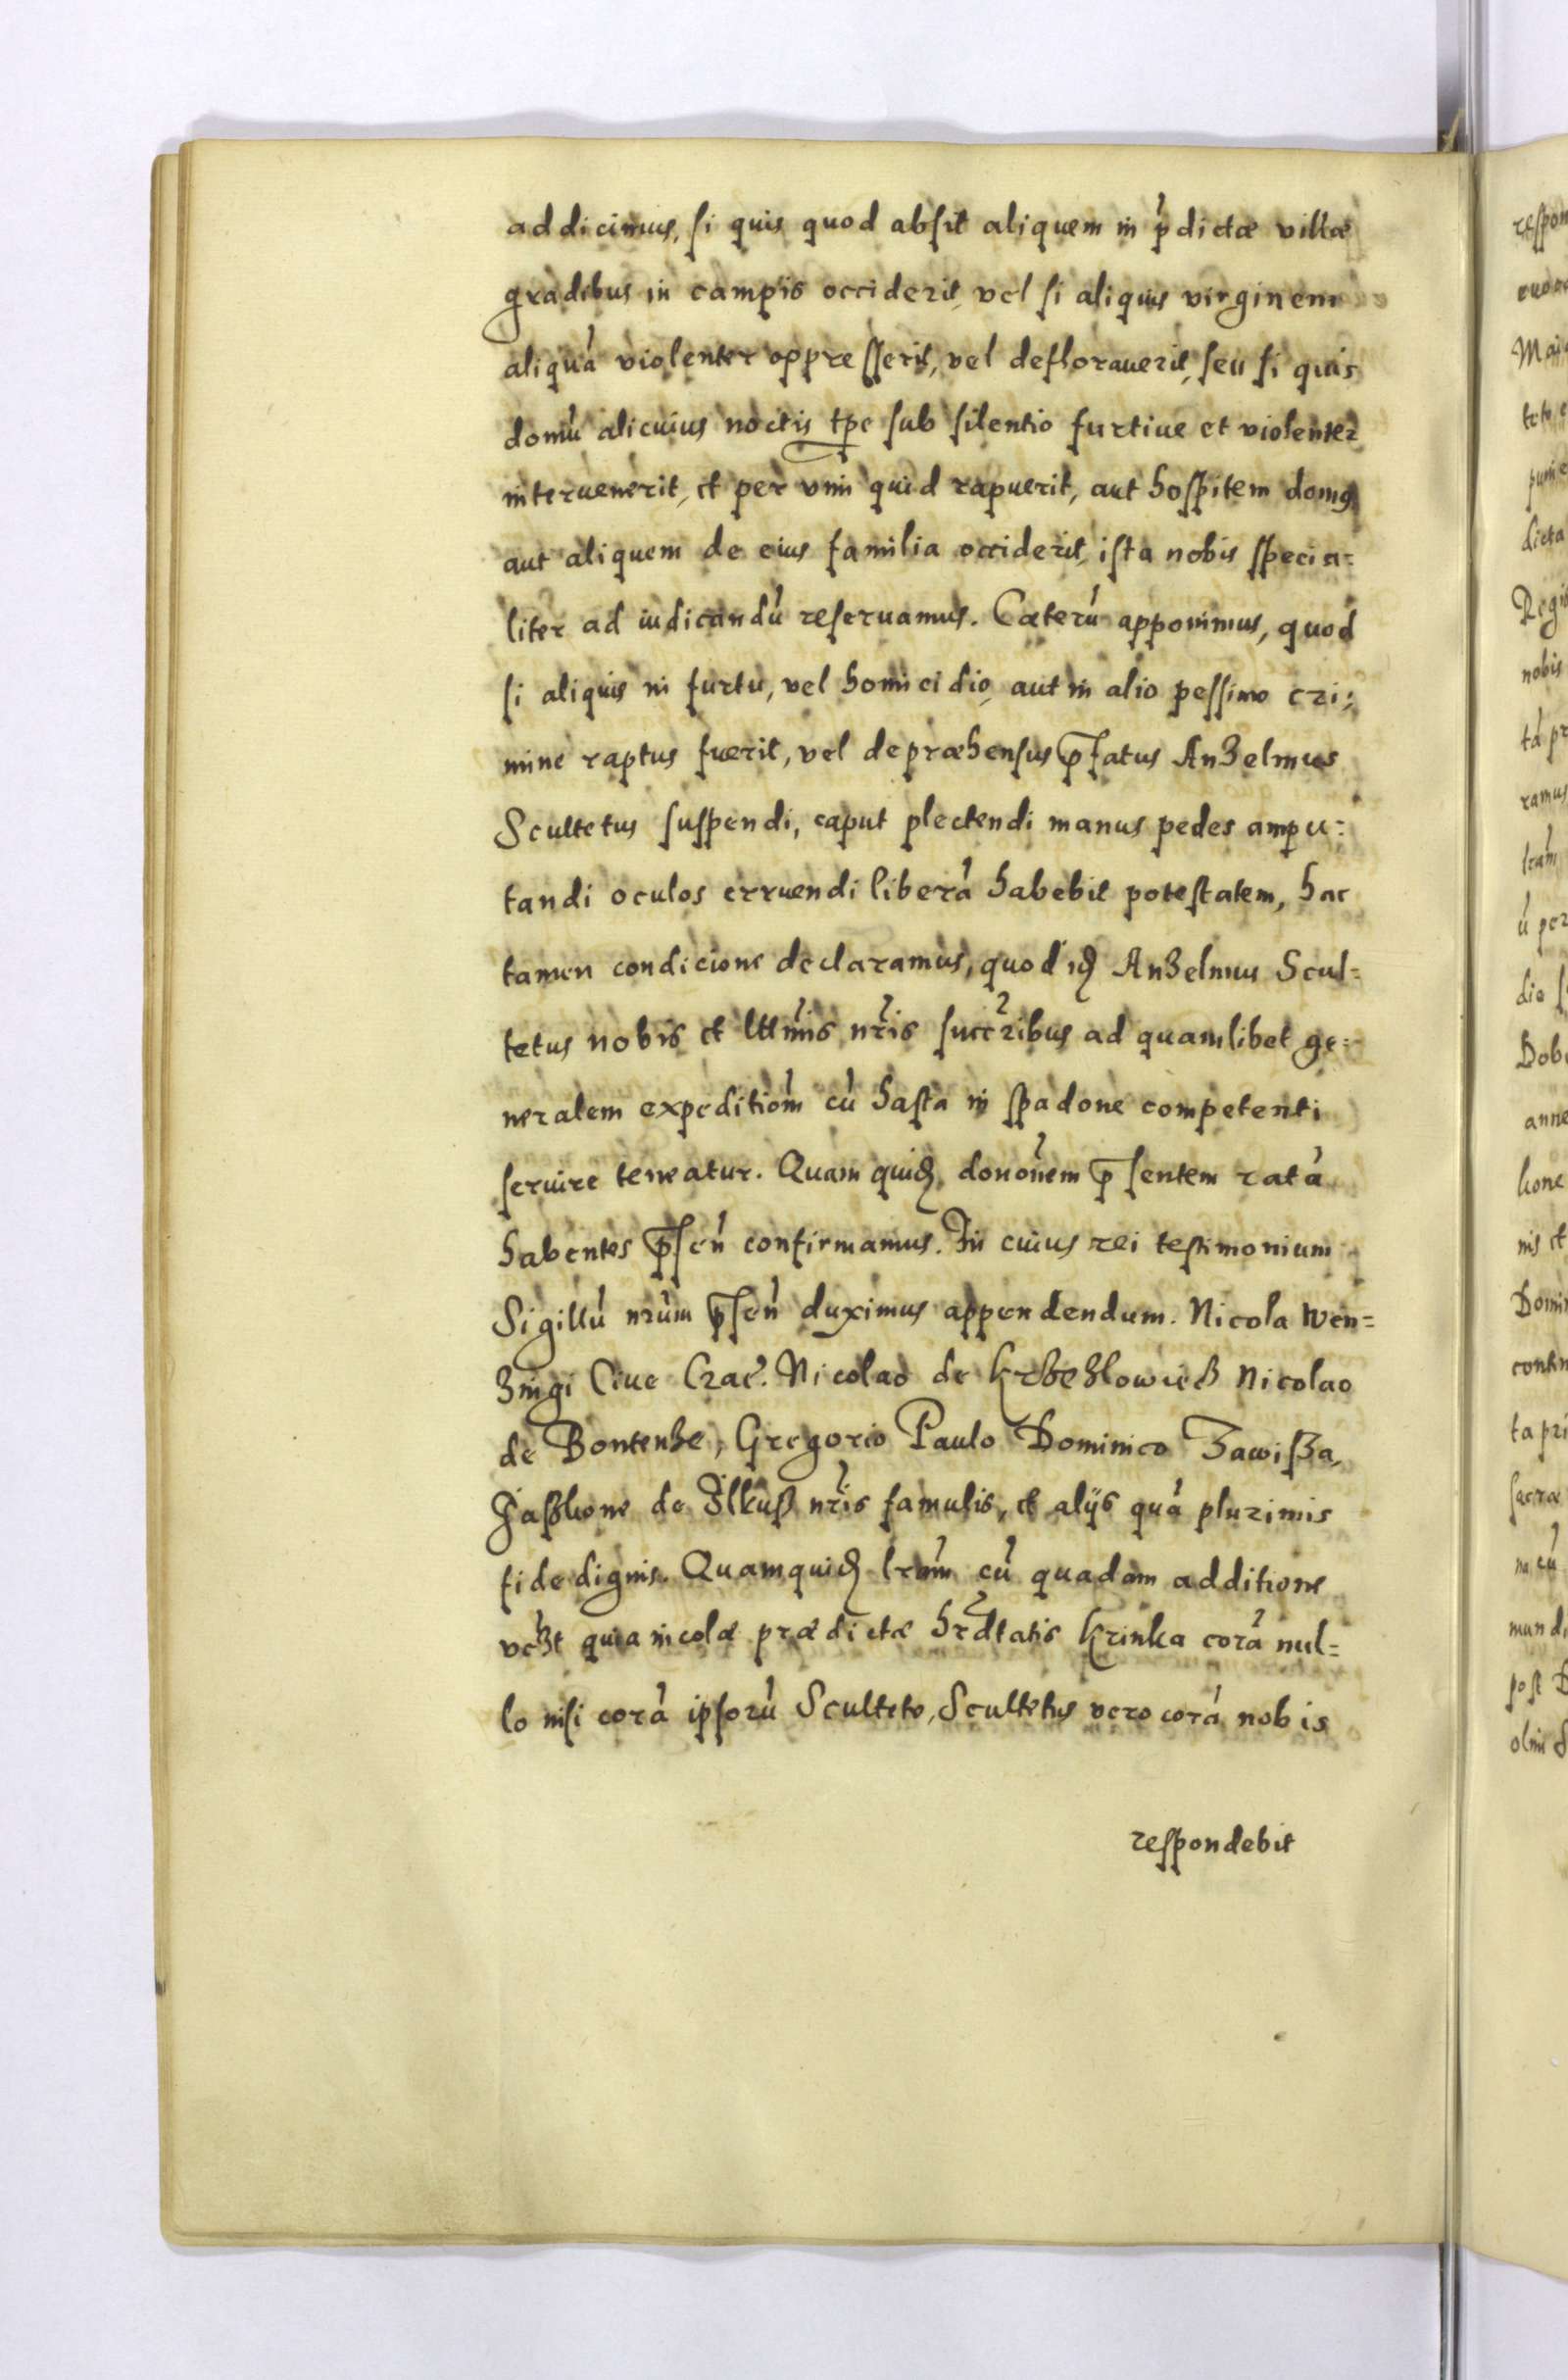 addicimus, si quis quod absit aliquem in p̓dictæ villæ
gradibus in campis occiderit, vel si aliquis virginem
aliquá violenter oppresserit, vel deflorauerit, seu si quis
domú alicuius noctis tp̱e sub silentio furtiue et violenter
interuenerit, et per vim quid rapuerit, aut hospitem domꝰ
aut aliquem de eius familia occiderit, ista nobis specia=
liter ad iudicandú reseruamus. Cæterú apponimus, quod
si aliquis in furtu, vel homicidio, aut in alio pessimo cri=
mine raptus fuerit, vel depræhensus p̄fatus Anzelmus
Scultetus suspendi, caput plectendi manus pedes ampu=
tandi oculos erruendi liberá habebit potestatem, hac
tamen condicione declaramus, quod idẽ Anzelmus Scul=
tetus nobis et lttimis nr̃is succ̃ribus ad quamlibet ge=
neralem expeditiom̃ cú hasta in spadone competenti
seruire teneatur. Quam quidẽ donõnem p̄sentem ratá
habentes p̄sen̓ confirmamus. In cuius rei testimonium
Sigillú nrúm p̄sen̓ duximus appendendum. Nicola Wen=
zingi Ciue Crac̓. Nicolao de Krzezlowicz Nicolao
de Bontenze, Gregorio Paulo Dominico Zawisza,
Jaszkone de Ilkusz nr̃is famulis, et alijs quá plurimis
fide dignis. Quamquidẽ lrám cú quadam additione
vczt quia incolæ prædictæ hr̃dtatis Krinka corá nul=
lo nisi corá ipsorú Sculteto, Scultetus vero corá nobis
respondebit